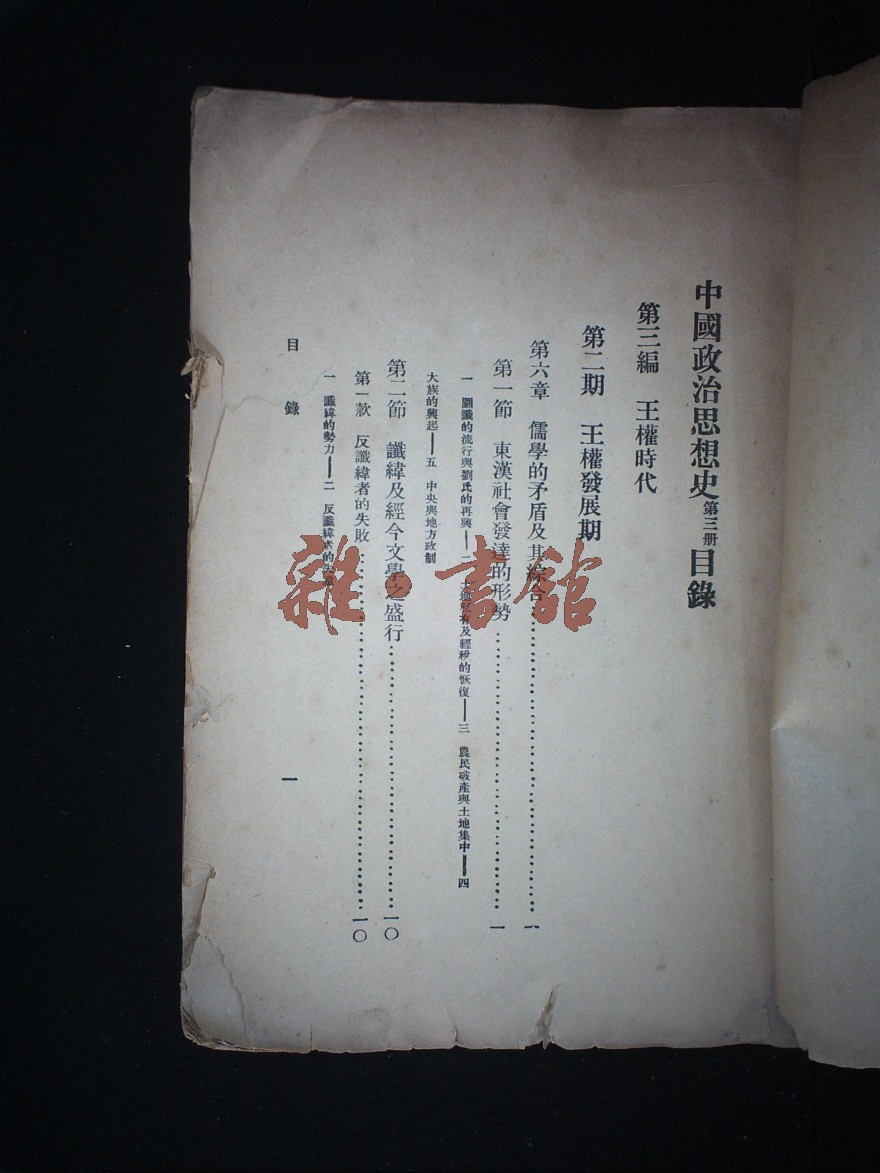 中國政治思想史第三册目錄
第三編　王權時代
第二期　王權發展期
第六章　儒學的矛盾及其綜合……一
第一節　東漢社會發達的形勢……一
一　圖讖的流行與劉氏的再興——二　及輕稅的恢復——三　農民破產與土地集中——四
大族的興起——五　中央與地方政制
第二節　讖緯及經今文學之盛行……一〇
第一款　反讖緯者的失敗……一〇
一　讖緯的勢力——二　反讖緯者的失敗
目　錄　一
雜·書館